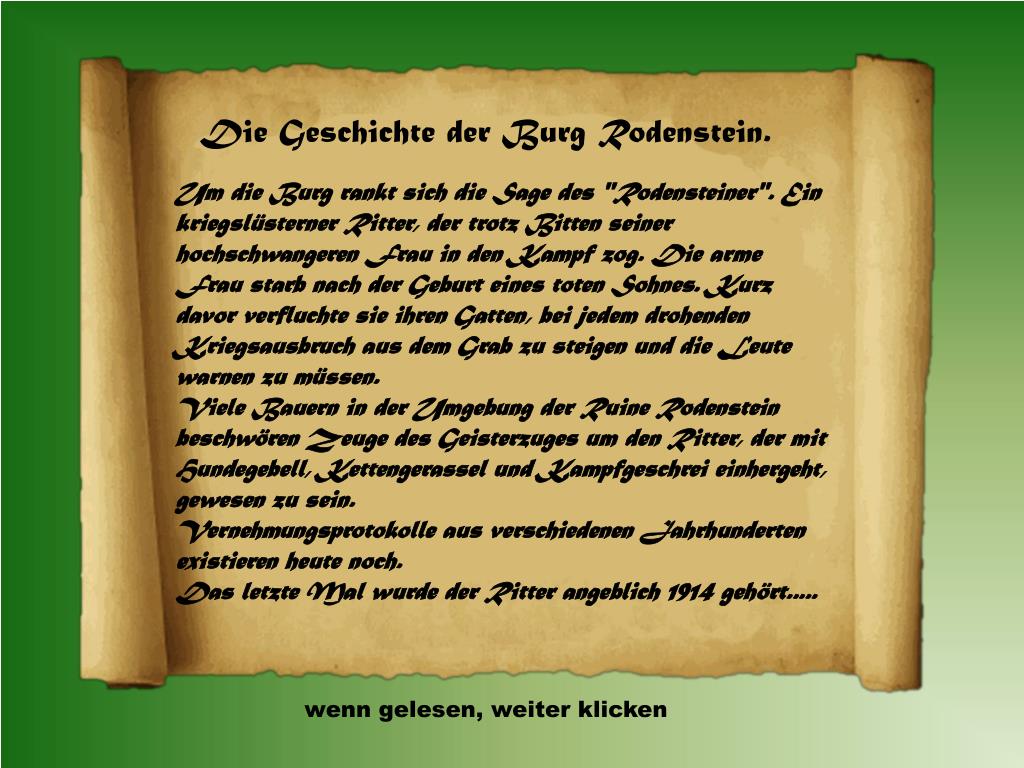 Die Geschichte der Burg Rodenstein.
Um die Burg rankt sich die Sage des "Rodensteiner". Ein
kriegslüsterner Ritter, der trotz Bitten seiner
hochschwangeren Frau in den Kampf zog. Die arme
Frau starb nach der Geburt eines toten Sohnes. Kurz
davor verfluchte sie ihren Gatten, bei jedem drohenden
Kriegsausbruch aus dem Grab zu steigen und die Leute
warnen zu müssen.
Viele Bauern in der Umgebung der Ruine Rodenstein
beschwören Zeuge des Geisterzuges um den Ritter, der mit
Hundegebell, Kettengerassel und Kampfgeschrei einhergeht,
gewesen zu sein.
Vernehmungsprotokolle aus verschiedenen Jahrhunderten
existieren heute noch.
Das letzte Mal wurde der Ritter angeblich 1914 gehört.....
wenn gelesen, weiter klicken